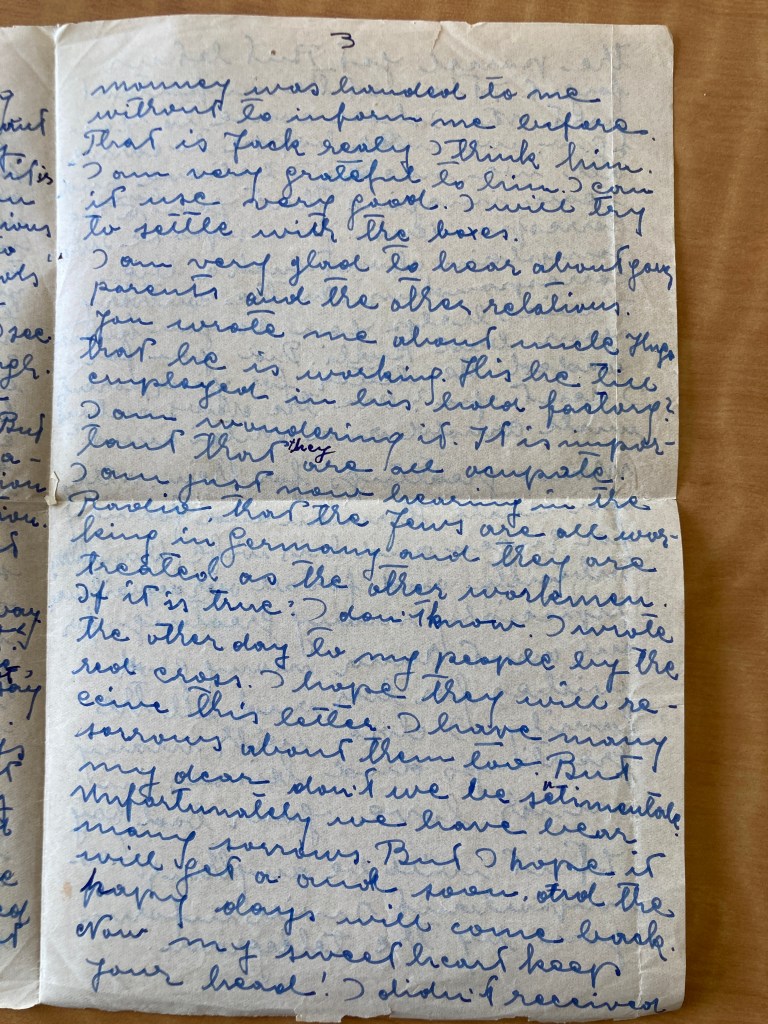 3
monney was handed to me
without to inform me before.
That is Jack realy I think him.
I am very grateful to him. I can
it use very good. I will try
to settle with the boxes.
I am very glad to hear about your
parents and the other relations.
You wrote me about uncle Hugo
that he is working. His he till
employed in his hold factory?
I am wondering it. It is impor-
tant that they are all ocupate.
I am just now hearing in the
Radio, that the Jews are all wor-
king in Germany and they are
treated as the other workmen.
If it is true? I don't know. I wrote
the other day to my people by the
red cross. I hope they will re-
ceive this letter. I have many
sorrows about them too. But
my dear don't we be sentimentale.
Unfortunately we have bear
many sorrows. But I hope it
will get a and soon, and the
papy days will come back.
Now my sweetheart keep
your head! I didn't received